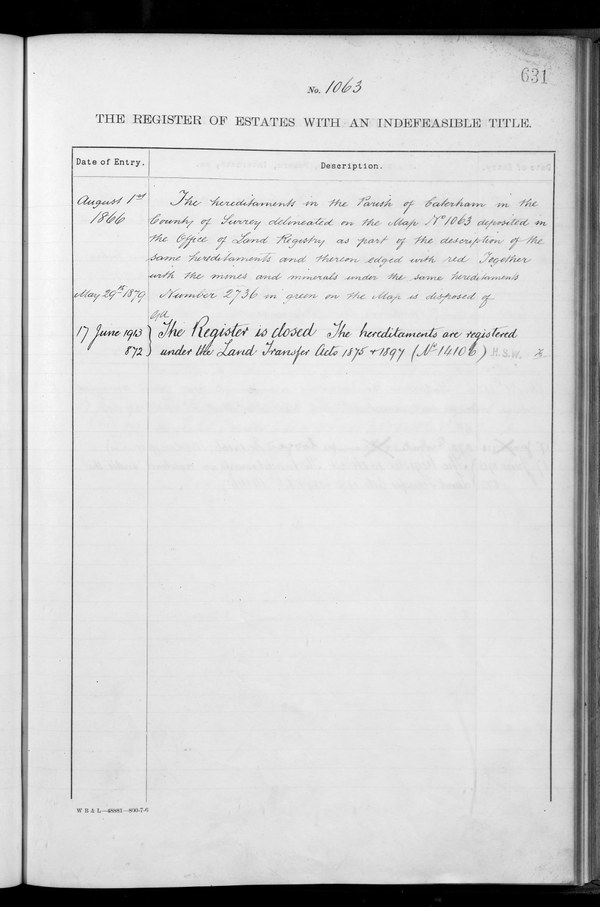 631
No. 1063
THE REGISTER OF ESTATES WITH AN INDEFEASIBLE TITLE.
Date of Entry. Description.
August 1st The hereditaments in the Parish of Caterham in the
1866 County of Surrey delineated on the Map No 1063 deposited in
the Office of Land Registry as part of the description of the
same hereditaments and thereon edged with red Together
with the mines and minerals under the same hereditaments
May 29th 1879 Number 2736 in green on the Map is disposed of
17 June 1913 } The Register is closed The hereditaments are registered
872 } under the Land Transfer Acts 1875 + 1897 (No 14106) H.S.W.
W B & L—48881—800-7-6